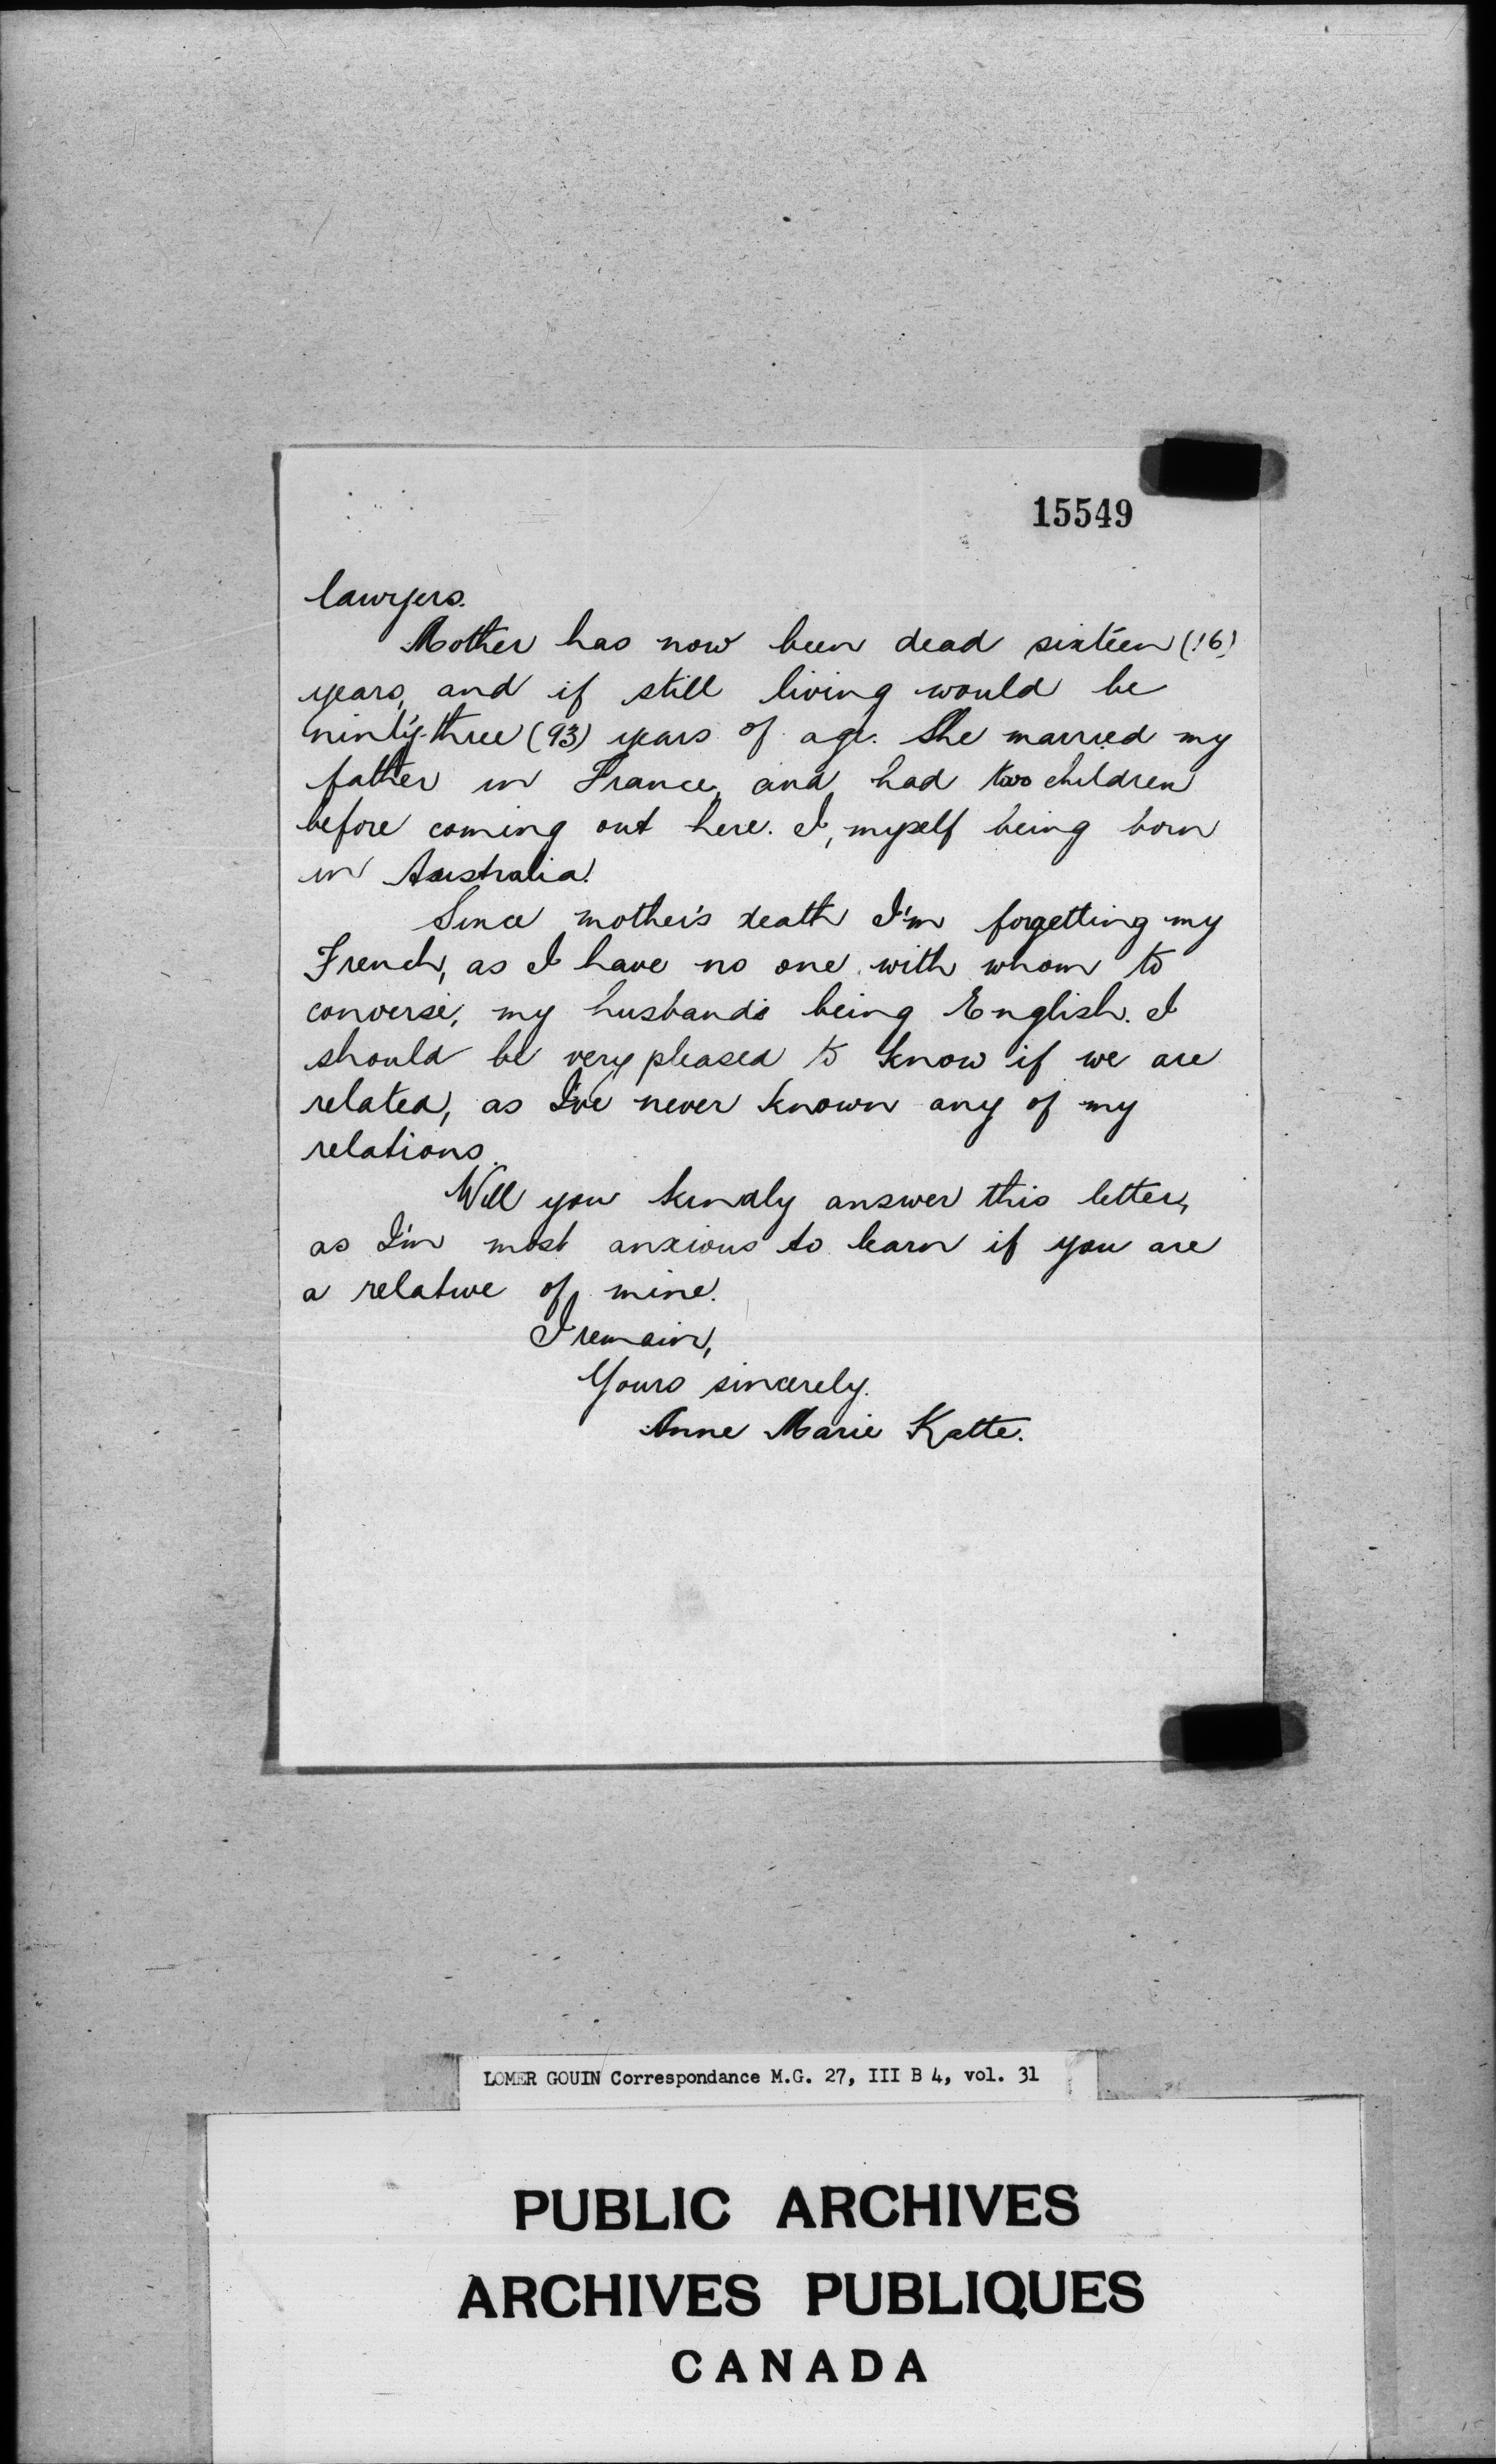 15549
lawyers.
Mother has now been dead sixteen (16)
years, and if still living would be
ninty-three (93) years of age. She married my
father in France, and had two children
before coming out here. I, myself being born
in Australia.
Since mother's death I'm forgetting my
French, as I have no one with whom to
converse, my husband's being English. I
should be very pleased to know if we are
related, as I've never known any of my
relations.
Will you kindly answer this letter,
as I'm most anxious to learn if you are
a relative of mine.
I remain,
Yours sincerely.
Anne Marie Katte.
LOMER GOUIN Correspondance M.G. 27, III B 4, vol. 31
PUBLIC ARCHIVES
ARCHIVES PUBLIQUES
CANADA